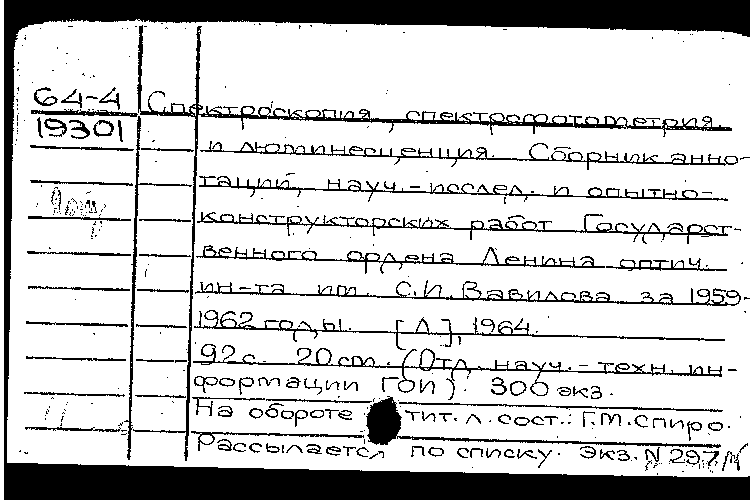 64-4 Спектроскопия, спектрофотометрия
19301 и люминесценция. Сборник анно-
таций, науч.-исслед. и опытно-
конструкторских работ Государст-
венного ордена Ленина оптич.
ин-та им. С.И.Вавилова за 1959-
1962 годы. [Л], 1964.
92с. 20см. (Отд. науч.-техн. ин-
формации ГОИ). 300 экз.
На обороте тит.л. сост.: Г.М.Спиро.
Рассылается по списку. Экз. N 297